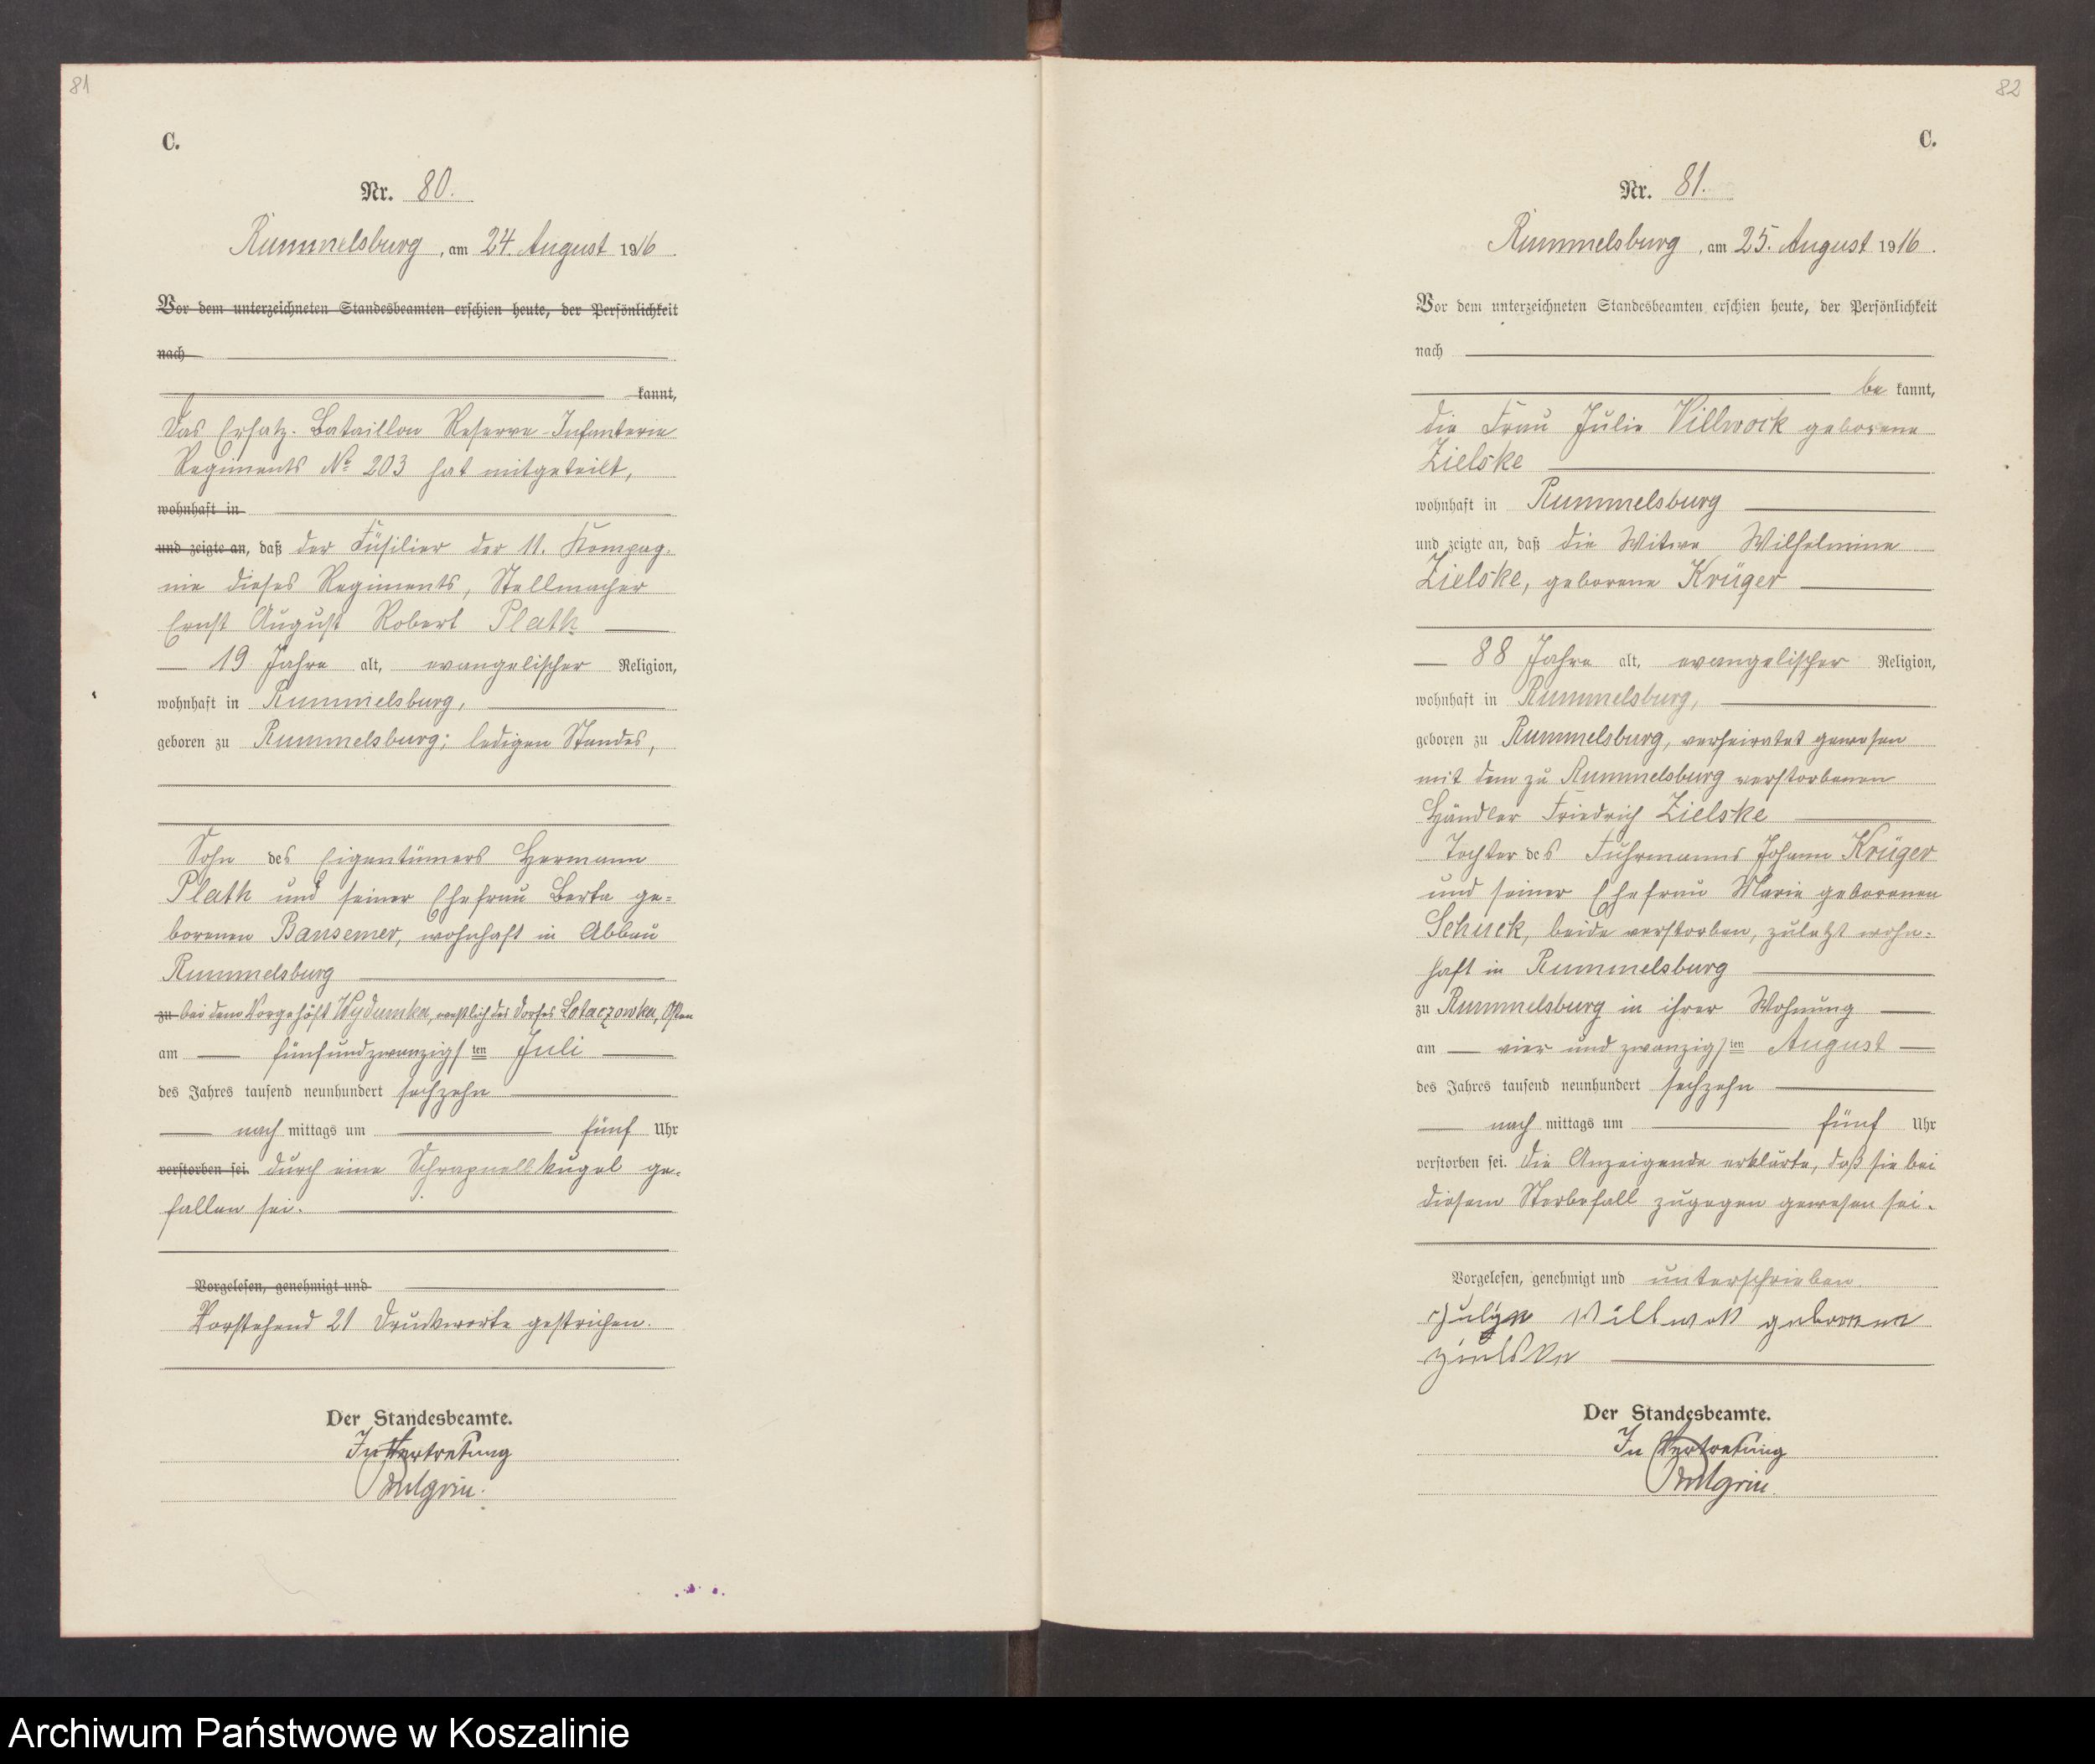 81
C.
Nr. 80.
Rummelsburg, am 24. August 1916.
Vor dem unterzeichneten Standesbeamten erschien heute, der Persönlichkeit
nach
kannt,
Das Ersatz-Bataillon Reserve-Infanterie
Regiments No 203 hat mitgeteilt,
wohnhaft in
und zeigte an, daß der Füsilier der 11. Kompag-
nie dieses Regiments, Stellmacher
Ernst August Robert Plath
19 Jahre alt, evangelischer Religion,
wohnhaft in Rummelsburg,
geboren zu Rummelsburg; ledigen Standes,
Sohn des Eigentümers Hermann
Plath und seiner Ehefrau Berta ge-
borenen Bansemer, wohnhaft in Abbau
Rummelsburg
zu bei dem Vorgehöft Wydumka, westlich des Dorfes Lotaczowka, Osten
am fünfundzwanzigsten Juli
des Jahres tausend neunhundert sechzehn
nachmittags um fünf Uhr
verstorben sei. durch eine Schrapnellkugel ge-
fallen sei.
Vorgelesen, genehmigt und
Vorstehend 21 Druckworte gestrichen.
Der Standesbeamte.
In Vertretung
82
C.
Nr. 81.
Rummelsburg, am 25. August 1916.
Vor dem unterzeichneten Standesbeamten erschien heute, der Persönlichkeit
nach
bekannt,
die Frau Julie Villwock geborene
Zielske
wohnhaft in Rummelsburg
und zeigte an, daß die Witwe Wilhelmine
Zielske, geborene Krüger
88 Jahre alt, evangelischer Religion,
wohnhaft in Rummelsburg,
geboren zu Rummelsburg, verheiratet gewesen
mit dem zu Rummelsburg verstorbenen
Händler Friedrich Zielske
Tochter des Fuhrmanns Johann Krüger
und seiner Ehefrau Marie geborenen
Schuck, beide verstorben, zuletzt wohn-
haft in Rummelsburg
zu Rummelsburg in ihrer Wohnung
am vier und zwanzigsten August
des Jahres tausend neunhundert sechzehn
nachmittags um fünf Uhr
verstorben sei. Die Anzeigende erklärte, daß sie bei
diesem Sterbefall zugegen gewesen sei.
Vorgelesen, genehmigt und unterschrieben.
Julye Willwok geboren
Zielske
Der Standesbeamte.
In Vertretung
Archiwum Państwowe w Koszalinie